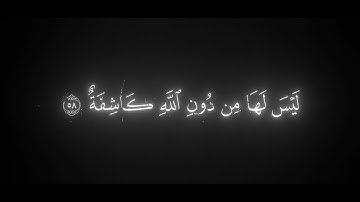 لَيْسَ لَهَا مِن دُونِ ٱللَّهِ كَاشِفَةٌ ٥٨